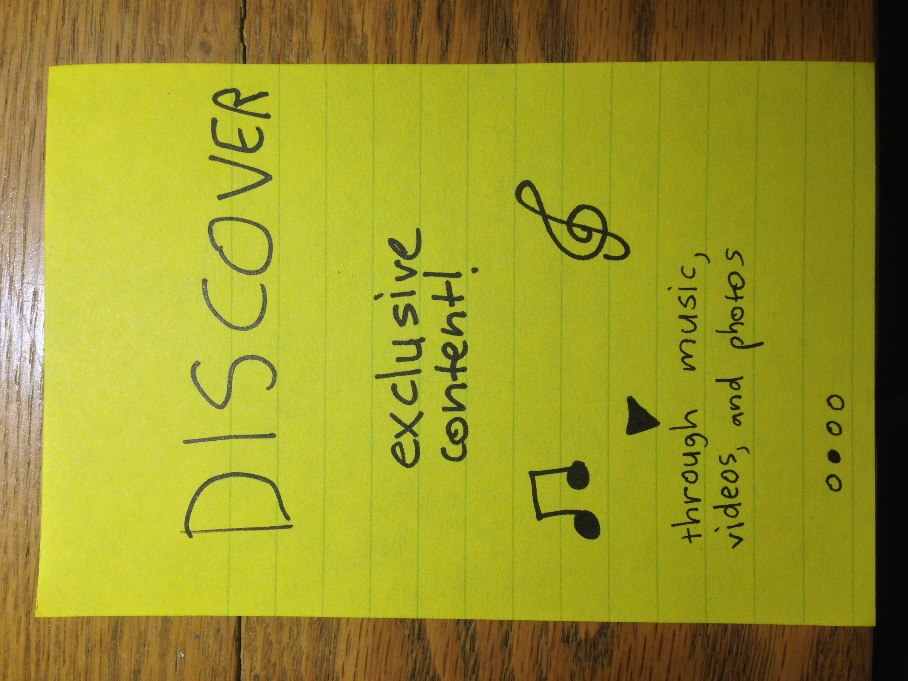 DISCOVER
exclusive
content!
through music,
videos, and photos